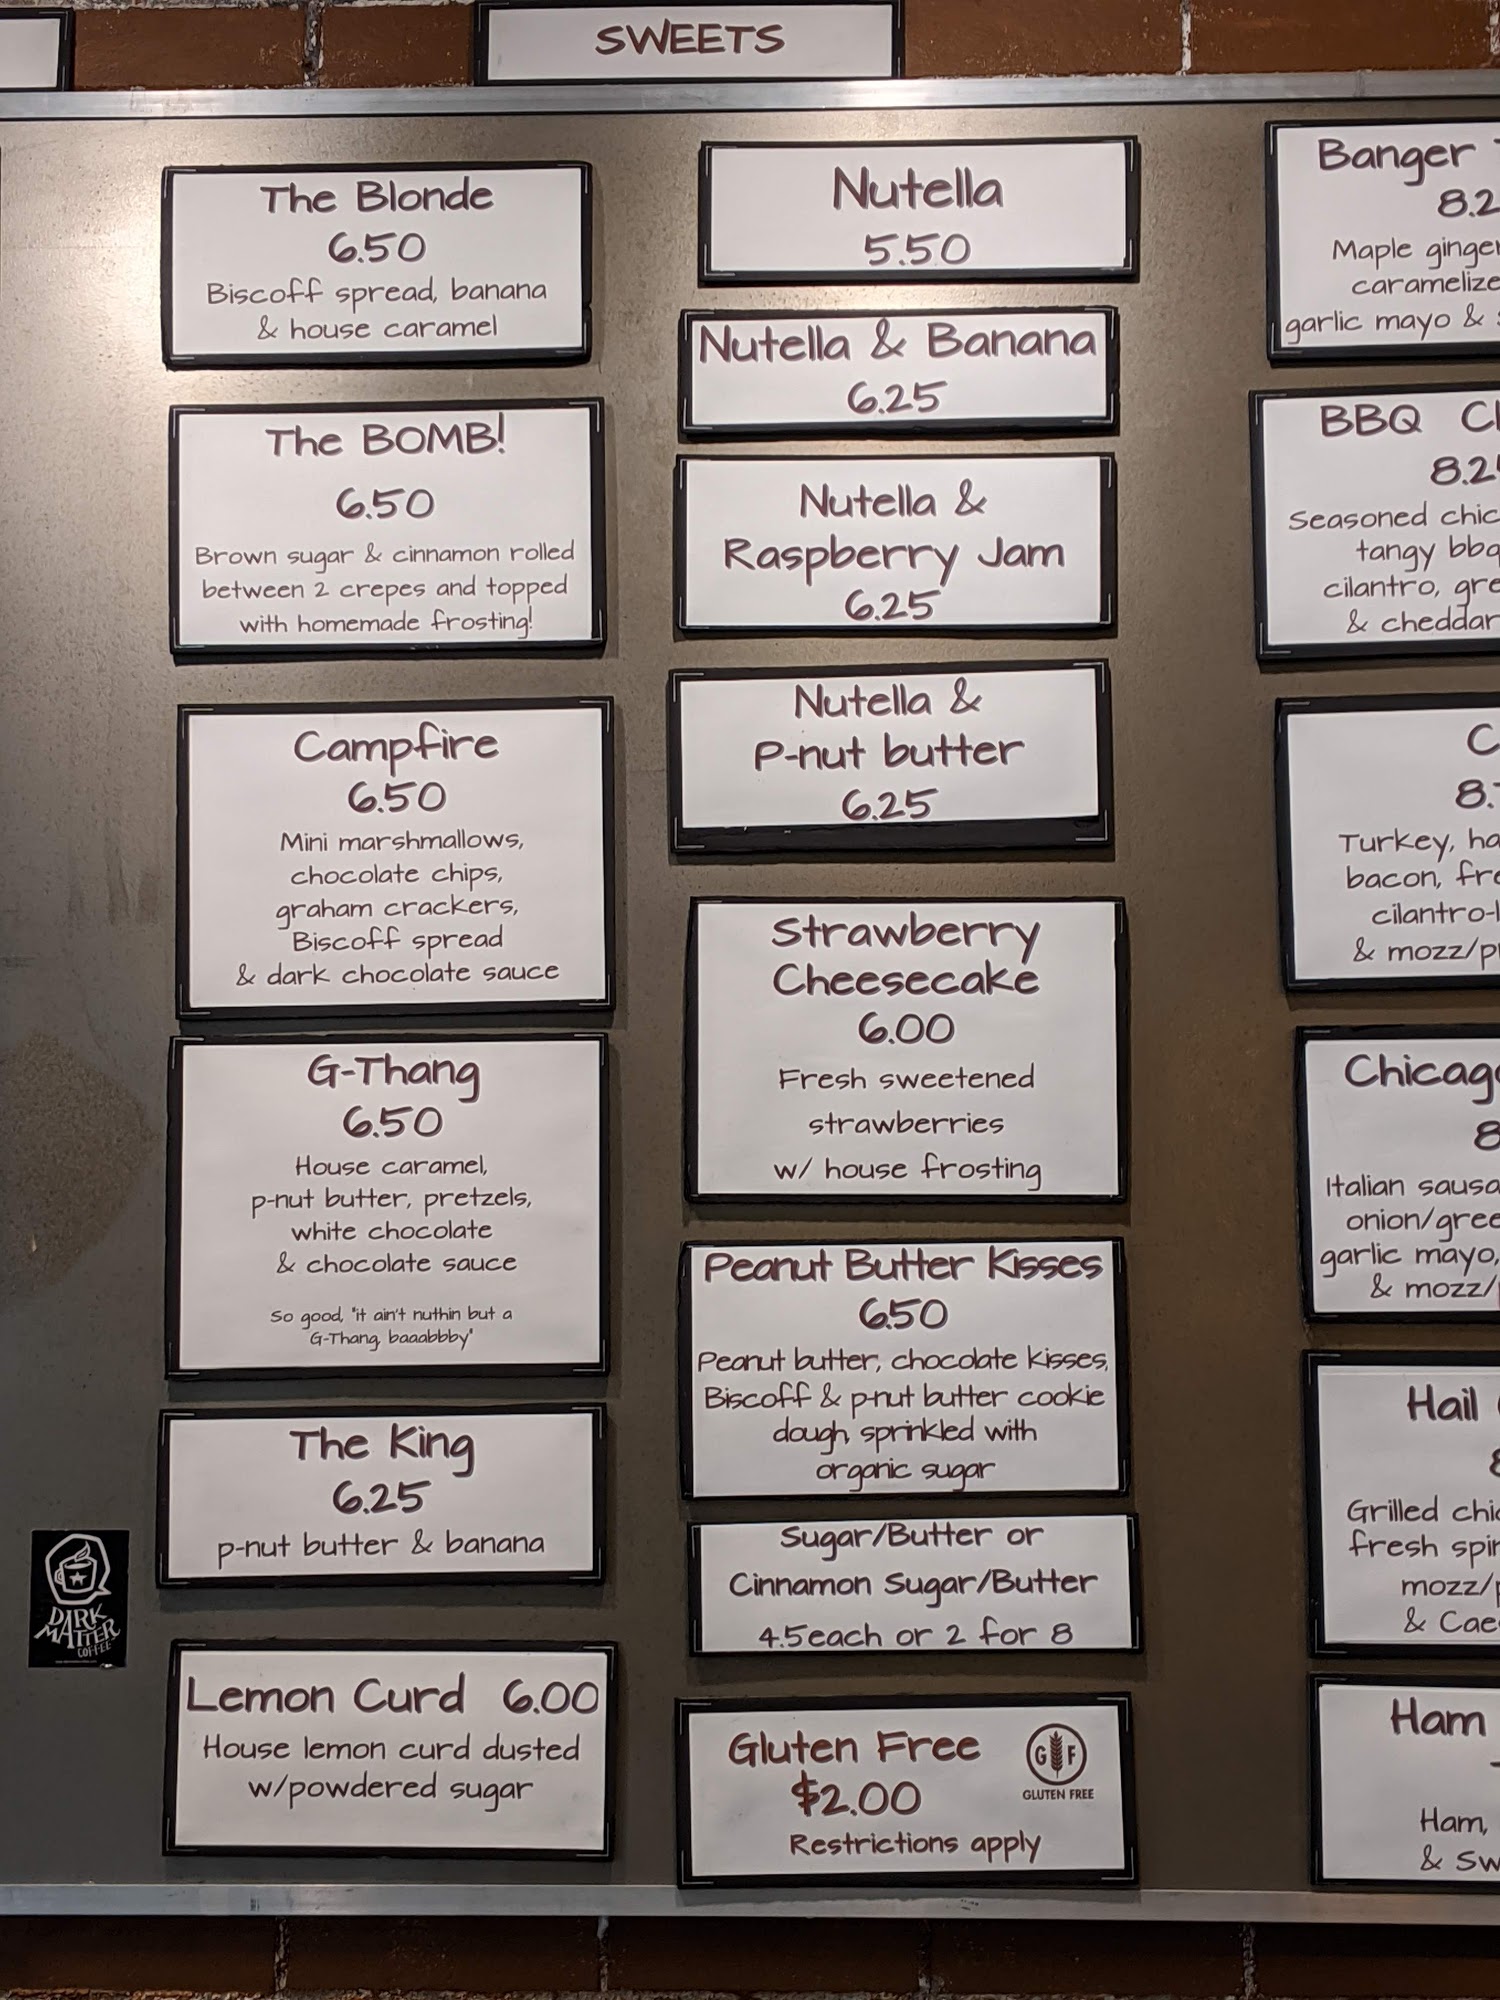 SWEETS
The Blonde
6.50
Biscoff spread, banana
& house caramel
The BOMB!
6.50
Brown sugar & cinnamon rolled
between 2 crepes and topped
with homemade frosting!
Campfire
6.50
Mini marshmallows,
chocolate chips,
graham crackers,
Biscoff spread
& dark chocolate sauce
G-Thang
6.50
House caramel,
p-nut butter, pretzels,
white chocolate
& chocolate sauce
So good, "it ain't nuthin but a
G-Thang, baaabbby"
The King
6.25
p-nut butter & banana
Lemon Curd 6.00
House lemon curd dusted
w/powdered sugar
DARK
MATTER
COFFEE
Nutella
5.50
Nutella & Banana
6.25
Nutella &
Raspberry Jam
6.25
Nutella &
P-nut butter
6.25
Strawberry
Cheesecake
6.00
Fresh sweetened
strawberries
w/ house frosting
Peanut Butter Kisses
6.50
Peanut butter, chocolate kisses,
Biscoff & p-nut butter cookie
dough, sprinkled with
organic sugar
Sugar/Butter or
Cinnamon Sugar/Butter
4.5each or 2 for 8
Gluten Free
$2.00
Restrictions apply
G F
GLUTEN FREE
Banger
8.2
Maple ginger
caramelize
garlic mayo &
BBQ
8.25
Seasoned chic
tangy bbq
cilantro, gre
& cheddar
8.
Turkey, ha
bacon, fre
cilantro-l
& mozz/p
Chicago
8
Italian sausa
onion/gree
garlic mayo,
& mozz/
Hail
Grilled chic
fresh spin
mozz/p
& Cae
Ham
Ham,
& Sw